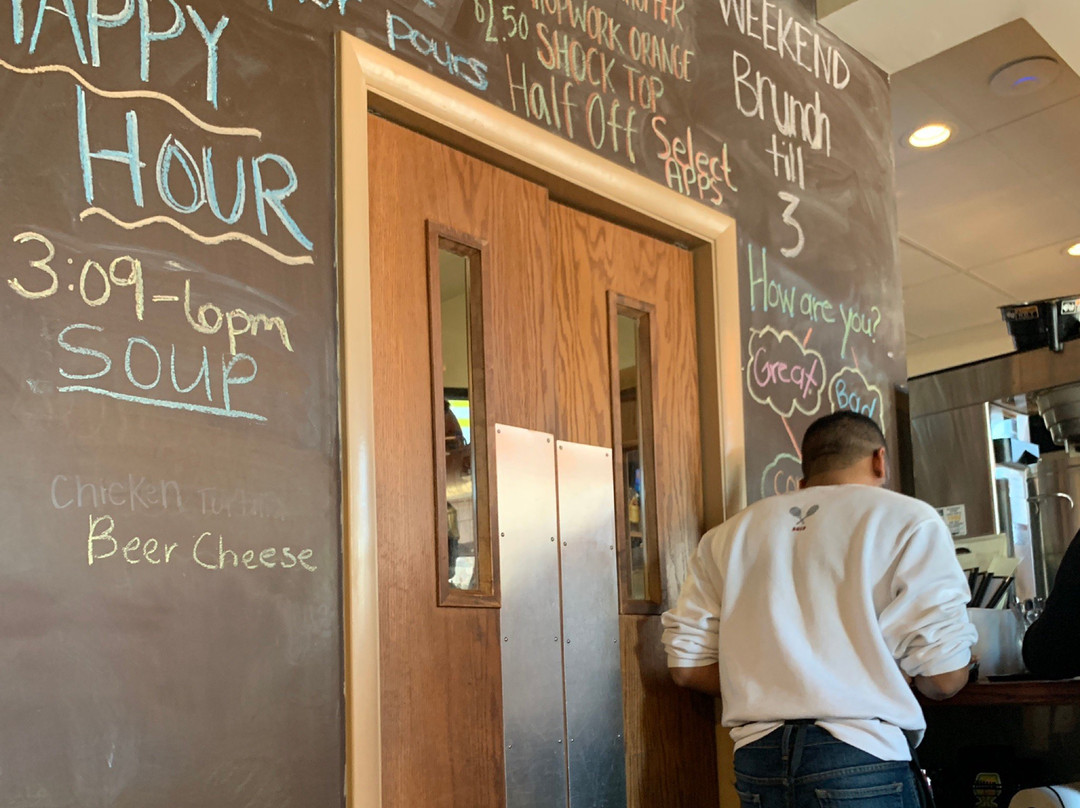 HAPPY
HOUR
3:09-6pm
SOUP
Chicken Tortilla
Beer Cheese
pours
$2.50
HOPWORK ORANGE
SHOCK TOP
Half Off
Select
APPS
WEEKEND
Brunch
till
3
How are you?
Great
Bad